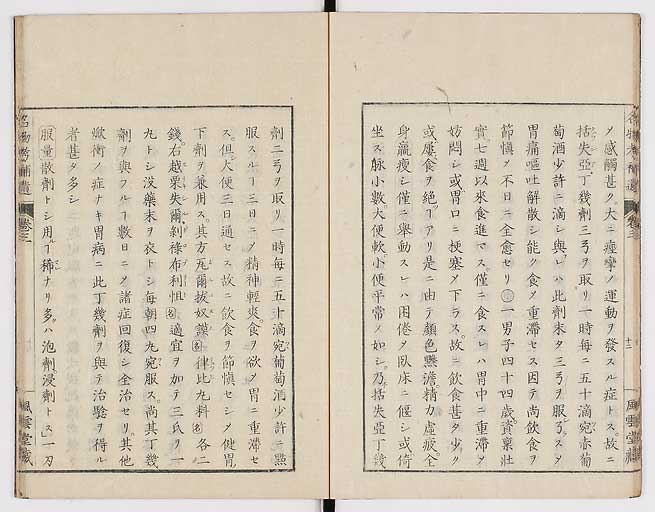 ノ感觸甚ク大ニ痙攣ノ運動ヲ發スル症トス故ニ
括失亞丁幾劑三弓ヲ取リ一時每ニ五十滴宛赤葡
萄酒少許ニ滴シ與レハ此劑未タ三弓ヲ服了スタ
胃痛嘔吐解散シ能ク食メ重滯セス因テ尚飲食ヲ
節愼メ不日ニ全愈セリ 一男子四十四歲資稟壯
實七週以來食進マス僅ニ食スレハ胃中ニ重滯ヲ
妨悶シ或ハ胃口ニ梗塞メ下ラス故ニ飲食甚タ少ク
或ハ食ヲ絕アリ是ニ由テ顏色黲澹精力虛疲全
身羸瘦シ僅ニ舉動スレハ困倦メ臥床ニ偃シ或倚
坐ス脉小數大便軟小便平常ノ如シ乃括失亞丁幾
劑二弓ヲ取リ一時每ニ五十滴宛葡萄酒少許ニ點
服スルヿ三日ニメ精神輕爽食ヲ欲メ胃ニ重滯セ
ス但大便三日通セス故ニ飲食ヲ節愼セシメ健胃
下劑ヲ兼用ス其方 律比九料 各二
錢右越栗失爾 適宜ヲ加テ三氏ノ一
九トシ沒藥末ヲ衣トシ每朝四九宛服ス尚其丁幾
劑ヲ與フルヿ數日ニメ諸症回復シ全治セリ其他
燉衝ノ症ナキ胃病ニ此丁幾劑ヲ與テ治驗ヲ得ル
者甚タ多シ
服量散劑トシ用ルヿ稀ナリ多ハ泡劑浸劑トス 一刃
名物考補遺 卷三
風雲堂藏